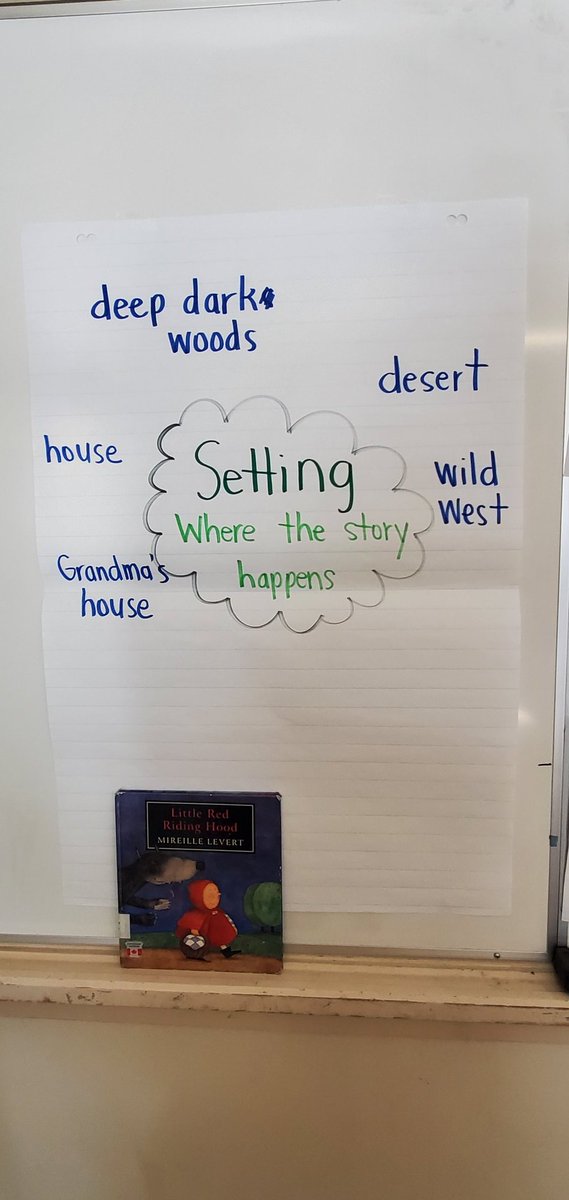 deep dark
woods
desert
house
Setting
Where the story
happens
wild
West
Grandma's
house
Little Red
Riding Hood
MIREILLE LEVERT